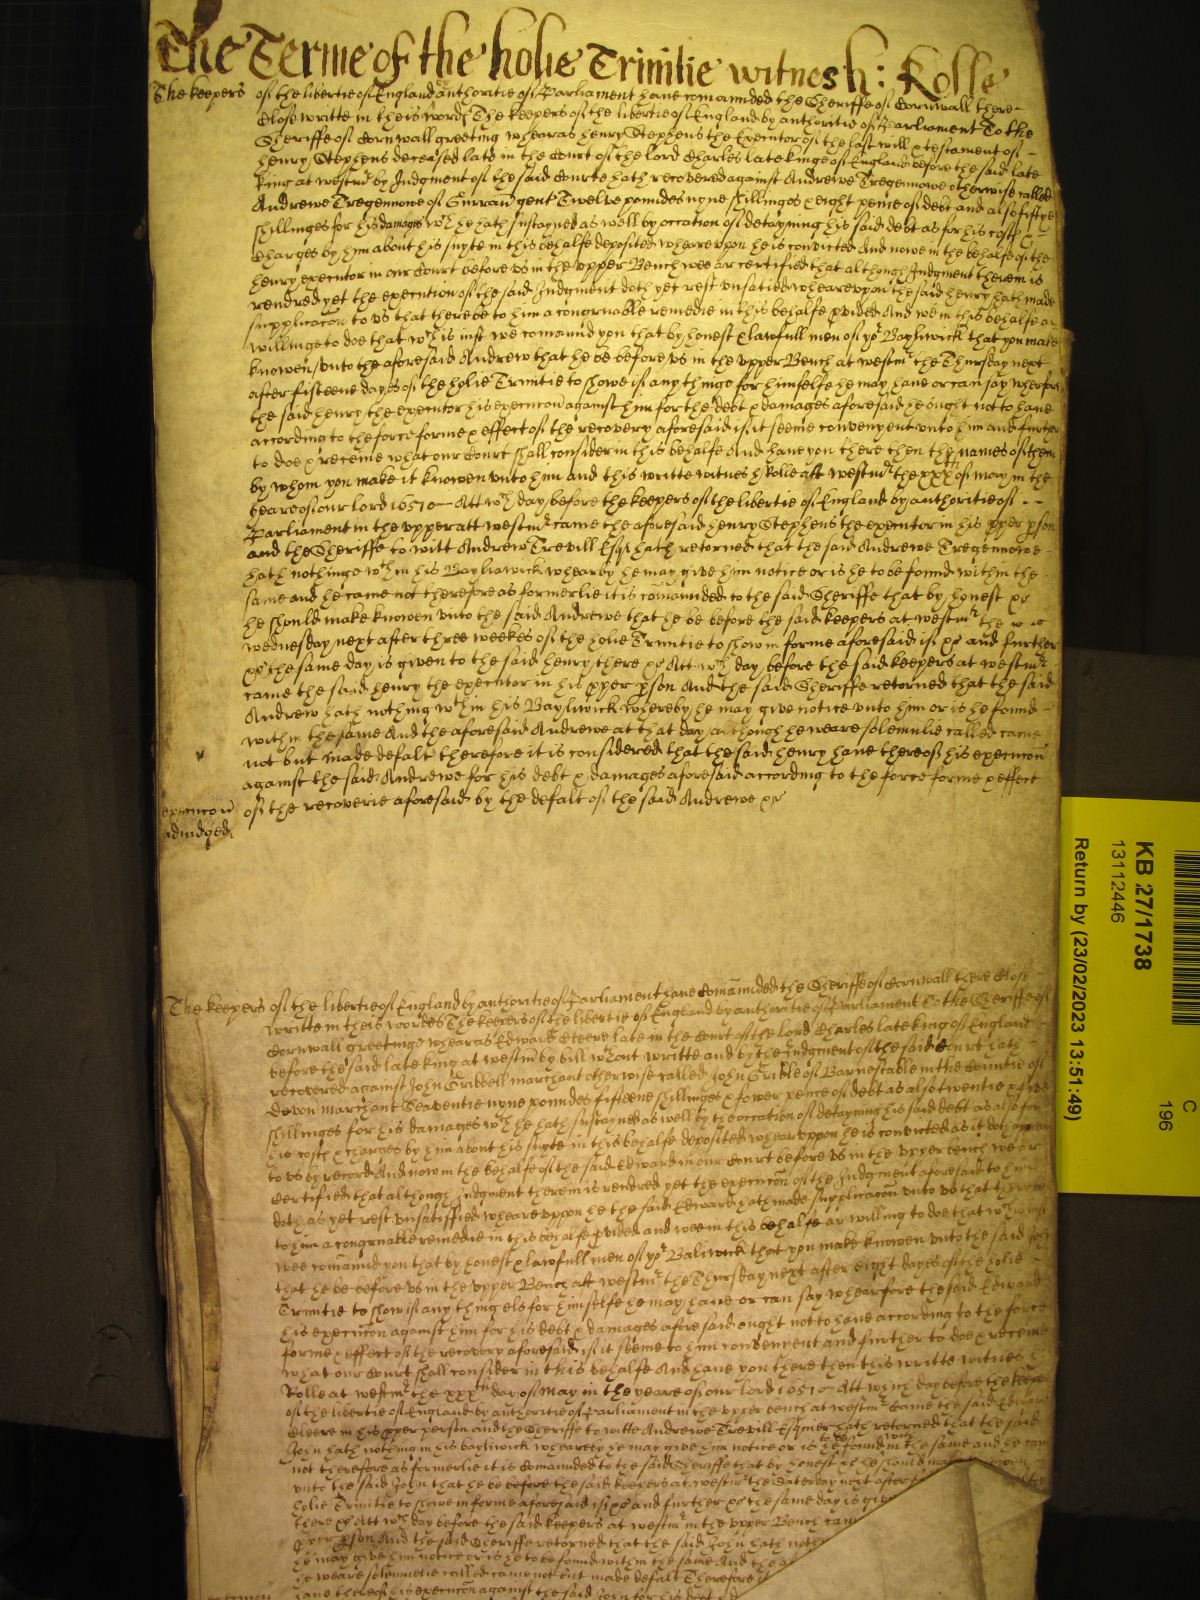 The Terme of the holie Trinitie witnes h: Rolle
The keepers of the libertie of England authoritie of Parliament have comanded the Sheriffe of Cornwall there
Close writte in theis words The keepers of the libertie of England by authoritie of Parliament To the
Sheriffe of Cornwall greeting wheras henry Stephens the Executor of the last will & testament of
henry Stephens deceased late in the Court of the lord Charles late kinge of England before the said late
king at westmr by Judgment of the said Courte hath recovered against Andrewe Tregennowe otherwise called
Andrewe Tregennowe of gent Twelve poundes nyne shillinges & eight pence of debt and also fiftye
shillinges for his damages wch he hath sustayned as well by occation of detayning his said debt as for his costs &
charges by him about his suyte in this behalfe deposited wheareupon he is convicted And nowe in the behalfe of the
henry executor in our Court before us in the upper Bench wee ar certified that although Judgment therein is
rendred yet the execution of the said Judgment doth yet rest unsatied wheareupon the said henry hath made
supplicacon to us that there be to him a congruable remedie in this behalfe pvided And we in this behalfe ar
willinge to doe that wch is iust we comaund you that by honest & lawfull men of yor Bayliwick that you make
knowen unto the aforesaid Andrew that he be before us in the upper Bench at westmr the Thursday next
after fifteene dayes of the holie Trinitie to showe if any thinge for himselfe he may have or can say wherfore
the said henry the executor his execucon against him for the debt & damages aforesaid he ought not to have
according to the force forme & effect of the recovery aforesaid if it seeme convenyent unto him and further
to doe & receive what our Court shall consider in this behalfe And have you there then the names of them
by whom you make it knowen unto him and this writte witnes h Rolle att westmr the xxxth of may in the
yeare of our lord 1651 Att wch day before the keepers of the libertie of England by authoritie of
Parliament in the upper att westmr came the aforesaid henry Stephens the executor in his pper pson
and the Sheriffe to witt Andrew Trevill Esqr hath retorned that the said Andrewe Tregennowe
hath nothinge wthin his Bayliawick wheareby he may give him notice or is he to be found within the
same and he came not therefore as formerlie it is comaunded to the said Sheriffe that by honest &c
he should make knowen unto the said Andrewe that he be before the said keepers at westmr the
wednesday next after three weekes of the holie Trinitie to show in forme aforesaid if &c and further
&c the same day is given to the said henry there &c Att wch day before the said keepers at westmr
came the said henry the executor in his pper pson And the said Sheriffe retorned that the said
Andrew hath nothing wthin his Bayliwick whereby he may give notice unto him or is he found
within the same And the aforesaid Andrewe at that day although he weare solemnlie called came
not but made defalt therefore it is considered that the said henry have thereof his execucon
against the said Andrewe for his debt & damages aforesaid according to the force forme & effect
execucon
adiudged
of the recoverie aforesaid by the defalt of the said Andrewe &c
The keepers of the libertie of England by authoritie of Parliament have comaunded the Sheriffe of Cornwall there Close
writte in theis wordes The keepers of the libertie of England by authoritie of Parliament To the Sheriffe of
Cornwall greetinge whearas Edward Cleere late in the Court of the Lord Charles late king of England
before the said late king at westmr by bill wthout writte and by the Judgment of the said Court hath
recovered against John Gribbell marchant otherwise called John Grible of Barnestable in the Countie of
Devon marchant Seaventie nyne poundes fifteene shillinges & fower pence of debt as also twentie &
shillinges for his damages wch he hath sustayned as well by the occation of detayning his said debt as also for
his costs & charges by him about his suyte in this behalfe deposited wheareuppon he is convicted as it doth appeare
to us by record And now in the behalfe of the said Edward in our Court before us in the upper bench we ar
certified that although Judgment therein is rendred yet the execucon of the Judgment aforesaid to him
doth as yet rest unsatisfied wheareuppon he the said Edward hath made supplicacon unto us that there be
to him a congruable remedie in this behalfe pvided and wee in this behalfe ar willing to doe that wch is iust
wee comaund you that by honest & lawfull men of yor Baliwick that you make knowen unto the said John
that he be before us in the upper Bench att westmr the Thursday next after eight dayes of the holie
Trinitie to show if any thing els for himselfe he may have or can say whearfore the said Edward
his execucon against him for his debt & damages aforesaid ought not to have according to the force
forme & effect of the recovery aforesaid if it seeme to him convenyent and further to doe & receive
what our Court shall consider in this behalfe And have you there then this writte witnes h
Rolle at westmr the xxxth day of may in the yeare of our lord 1651 Att which day before the keepers
of the libertie of England by authoritie of Parliament in the upper bench at westmr came the said Edward
Cleere in his pper person and the Sheriffe to witte Andrewe Trevill Esquier hath retorned that the said
John hath nothing in his bayliwick wheareby he may give him notice or is he to be found within the same and he came
not therefore as formerlie it is comaunded to the said Sheriffe that by honest &c he should make knowen
unto the said John that he be before the said keepers at westmr the Saturday next after
holie Trinitie to showe in forme aforesaid if &c and further &c the same day is given
there &c Att wch day before the said keepers at westmr in the upper Bench came
pper pson And the said Sheriffe retorned that the said John hath nothing
he may give him notice or is he to be found within the same And the
he weare solemnelie called came not but made defalt Therefore it
have thereof his execucon against the said John for his debt
KB 27/1738
13112446
Return by (23/02/2023 13:51:49)
C
196